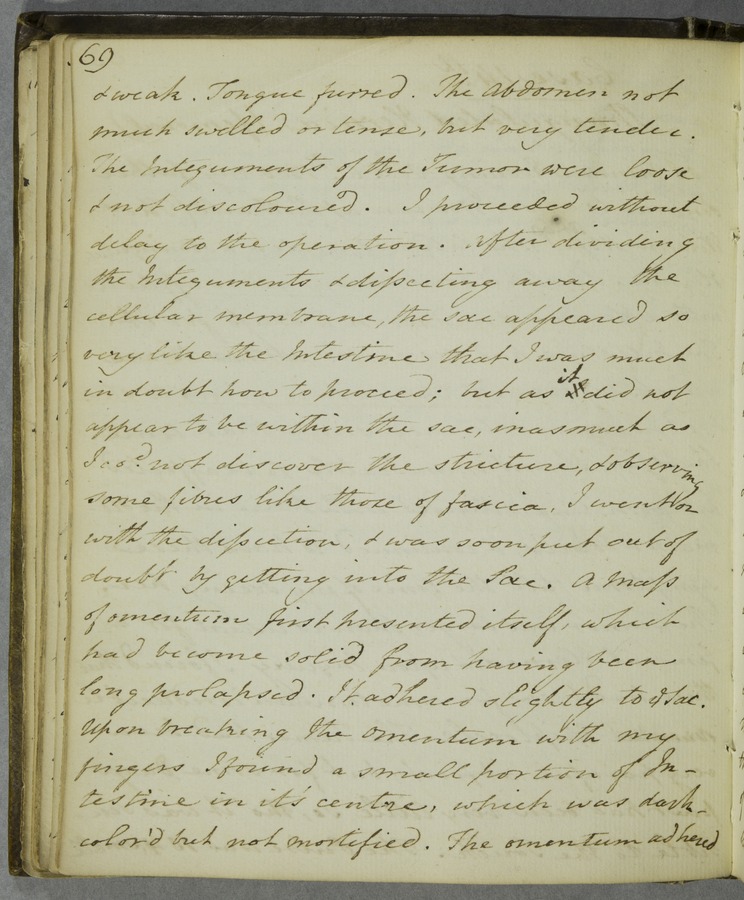 69
& weak. Tongue furred. The Abdomen not
much swelled or tense, but very tender.
The Integuments of the Tumor were loose
& not discoloured. I proceeded without
delay to the operation. After dividing
the Integuments & dissecting away the
cellular membrane, the sac appeared so
very like the Intestine that I was much
in doubt how to proceed; but as it did not
appear to be within the sac, inasmuch as
I cod. not discover the stricture, & observing
some fibres like those of fascia, I went on
with the dissection, & was soon put out of
doubt by getting into the Sac. A mass
of omentum first presented itself, which
had become solid from having been
long prolapsed. It adhered slightly to ye Sac.
Upon breaking the omentum with my
fingers I found a small portion of In-
testine in it's centre, which was dark-
color'd but not mortified. The omentum adhered